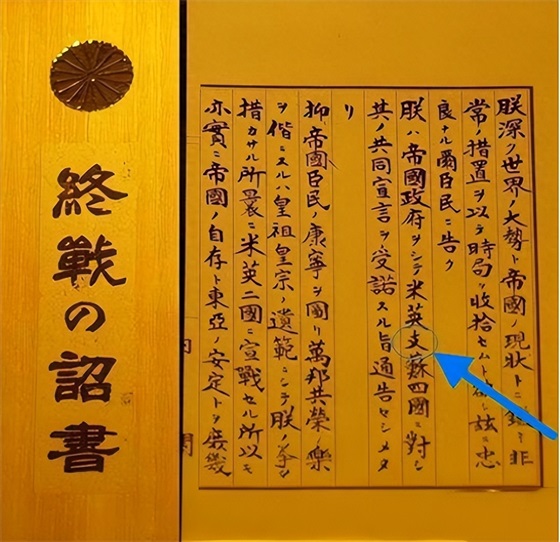 朕深ク世界ノ大勢ト帝國ノ現狀トニ鑑ミ非
常ノ措置ヲ以テ時局ヲ收拾セムト欲シ茲ニ忠
良ナル爾臣民ニ告ク
朕ハ帝國政府ヲシテ米英支蘇四國ニ對シ
其ノ共同宣言ヲ受諾スル旨通告セシメタ
リ
抑帝國臣民ノ康寧ヲ圖リ萬邦共榮ノ樂
ヲ偕ニスルハ皇祖皇宗ノ遺範ニシテ朕ノ拳々
措カサル所曩ニ米英二國ニ宣戰セル所以モ
亦實ニ帝國ノ自存ト東亞ノ安定トヲ庶幾
終戦の詔書